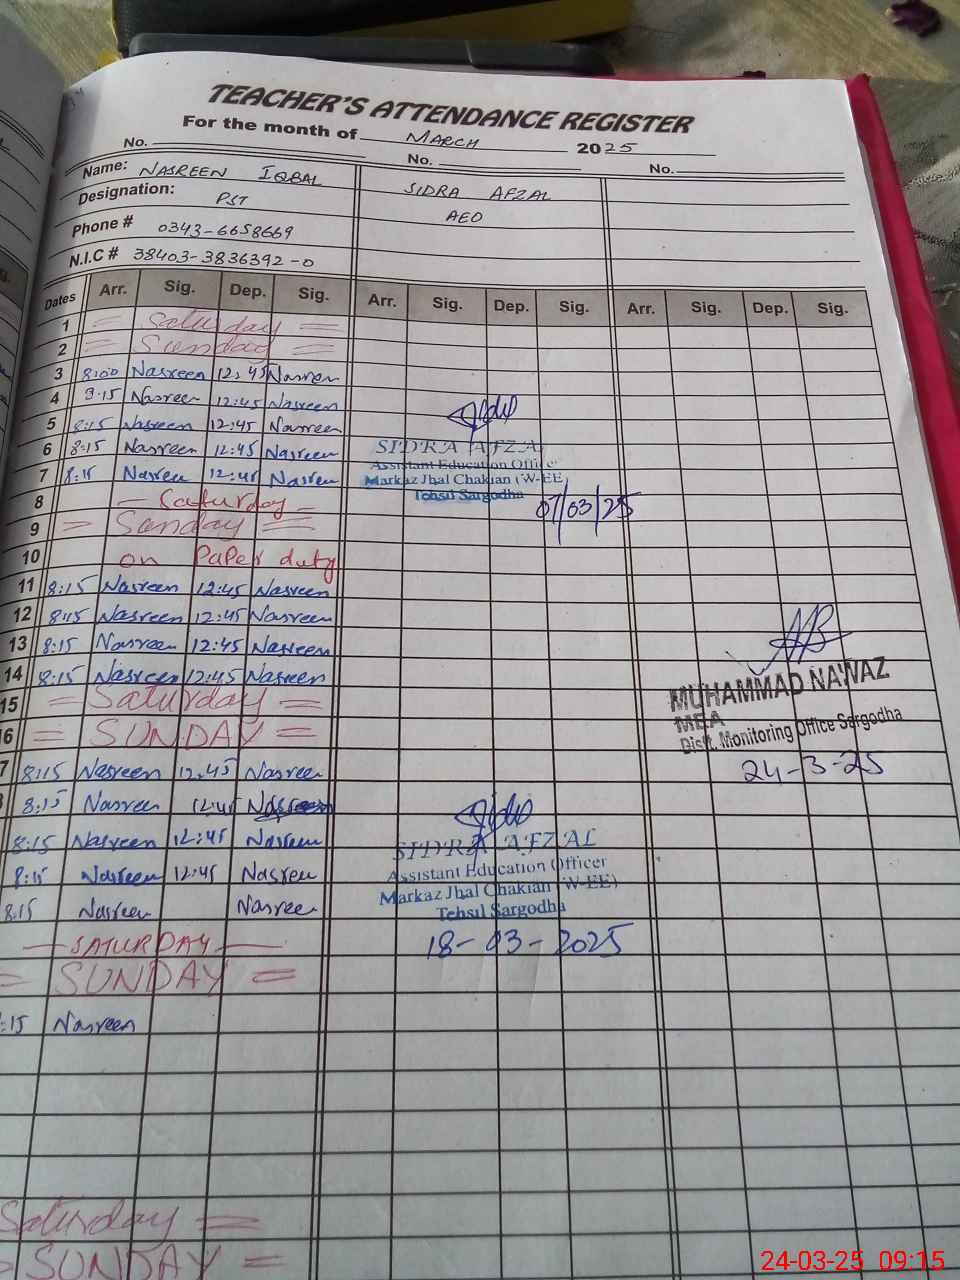 TEACHER'S ATTENDANCE REGISTER
For the month of MARCH 2025
No. No. No.
Name: NASREEN IQBAL SIDRA AFZAL
Designation: PST AEO
Phone # 0343-6658669
N.I.C # 38403-3836392-0
Dates Arr. Sig. Dep. Sig. Arr. Sig. Dep. Sig. Arr. Sig. Dep. Sig.
1 = Saturday =
2 = Sunday =
3 8:00 Nasreen 12:45 Nasreen
4 9:15 Nasreen 12:45 Nasreen
5 8:15 Nasreen 12:45 Nasreen
6 8:15 Nasreen 12:45 Nasreen
SIDRA AFZA
7 8:15 Nasreen 12:45 Nasreen
Assistant Education Office
Markaz Jhal Chakian (W-EE)
Tehsil Sargodha
8 - Saturday -
07/03/25
9 = Sanday =
10 on PaPer duty
11 8:15 Nasreen 12:45 Nasreen
12 8:15 Nasreen 12:45 Nasreen
13 8:15 Nasreen 12:45 Nasreen
14 8:15 Nasreen 12:45 Nasreen
15 = Saturday =
MUHAMMAD NAWAZ
MEA
16 = SUNDAY =
Distt. Monitoring Office Sargodha
24-3-25
7 8:15 Nasreen 12:45 Nasreen
8:15 Nasreen 12:45 Nasreen
8:15 Nasreen 12:45 Nasreen
SIDRA AFZAL
Assistant Education Officer
8:15 Nasreen 12:45 Nasreen
Markaz Jhal Chakian (W-EE)
Tehsil Sargodha
8:15 Nasreen Nasreen
18-03-2025
- SATURDAY -
= SUNDAY =
:15 Nasreen
Saturday =
= SUNDAY =
24-03-25 09:15